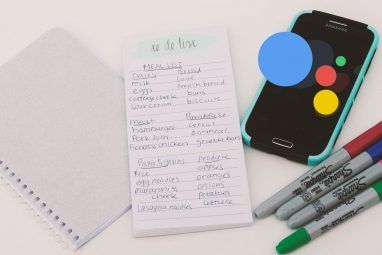 to do list
MEAL LIST
Dairy Bread
milk loaf
eggs french bread
cottage cheese buns
sour cream biscuits
meat Breakfast
hamburger cereal
Pork loin oatmeal
Boneless chicken granola bars
Pasta/grains produce
Rice apples
egg noodles oranges
manicotti onions
cheese Potatoes
Lasagna noodles lettuce
SAMSUNG
Sharpie
Sharpie
Sharpie